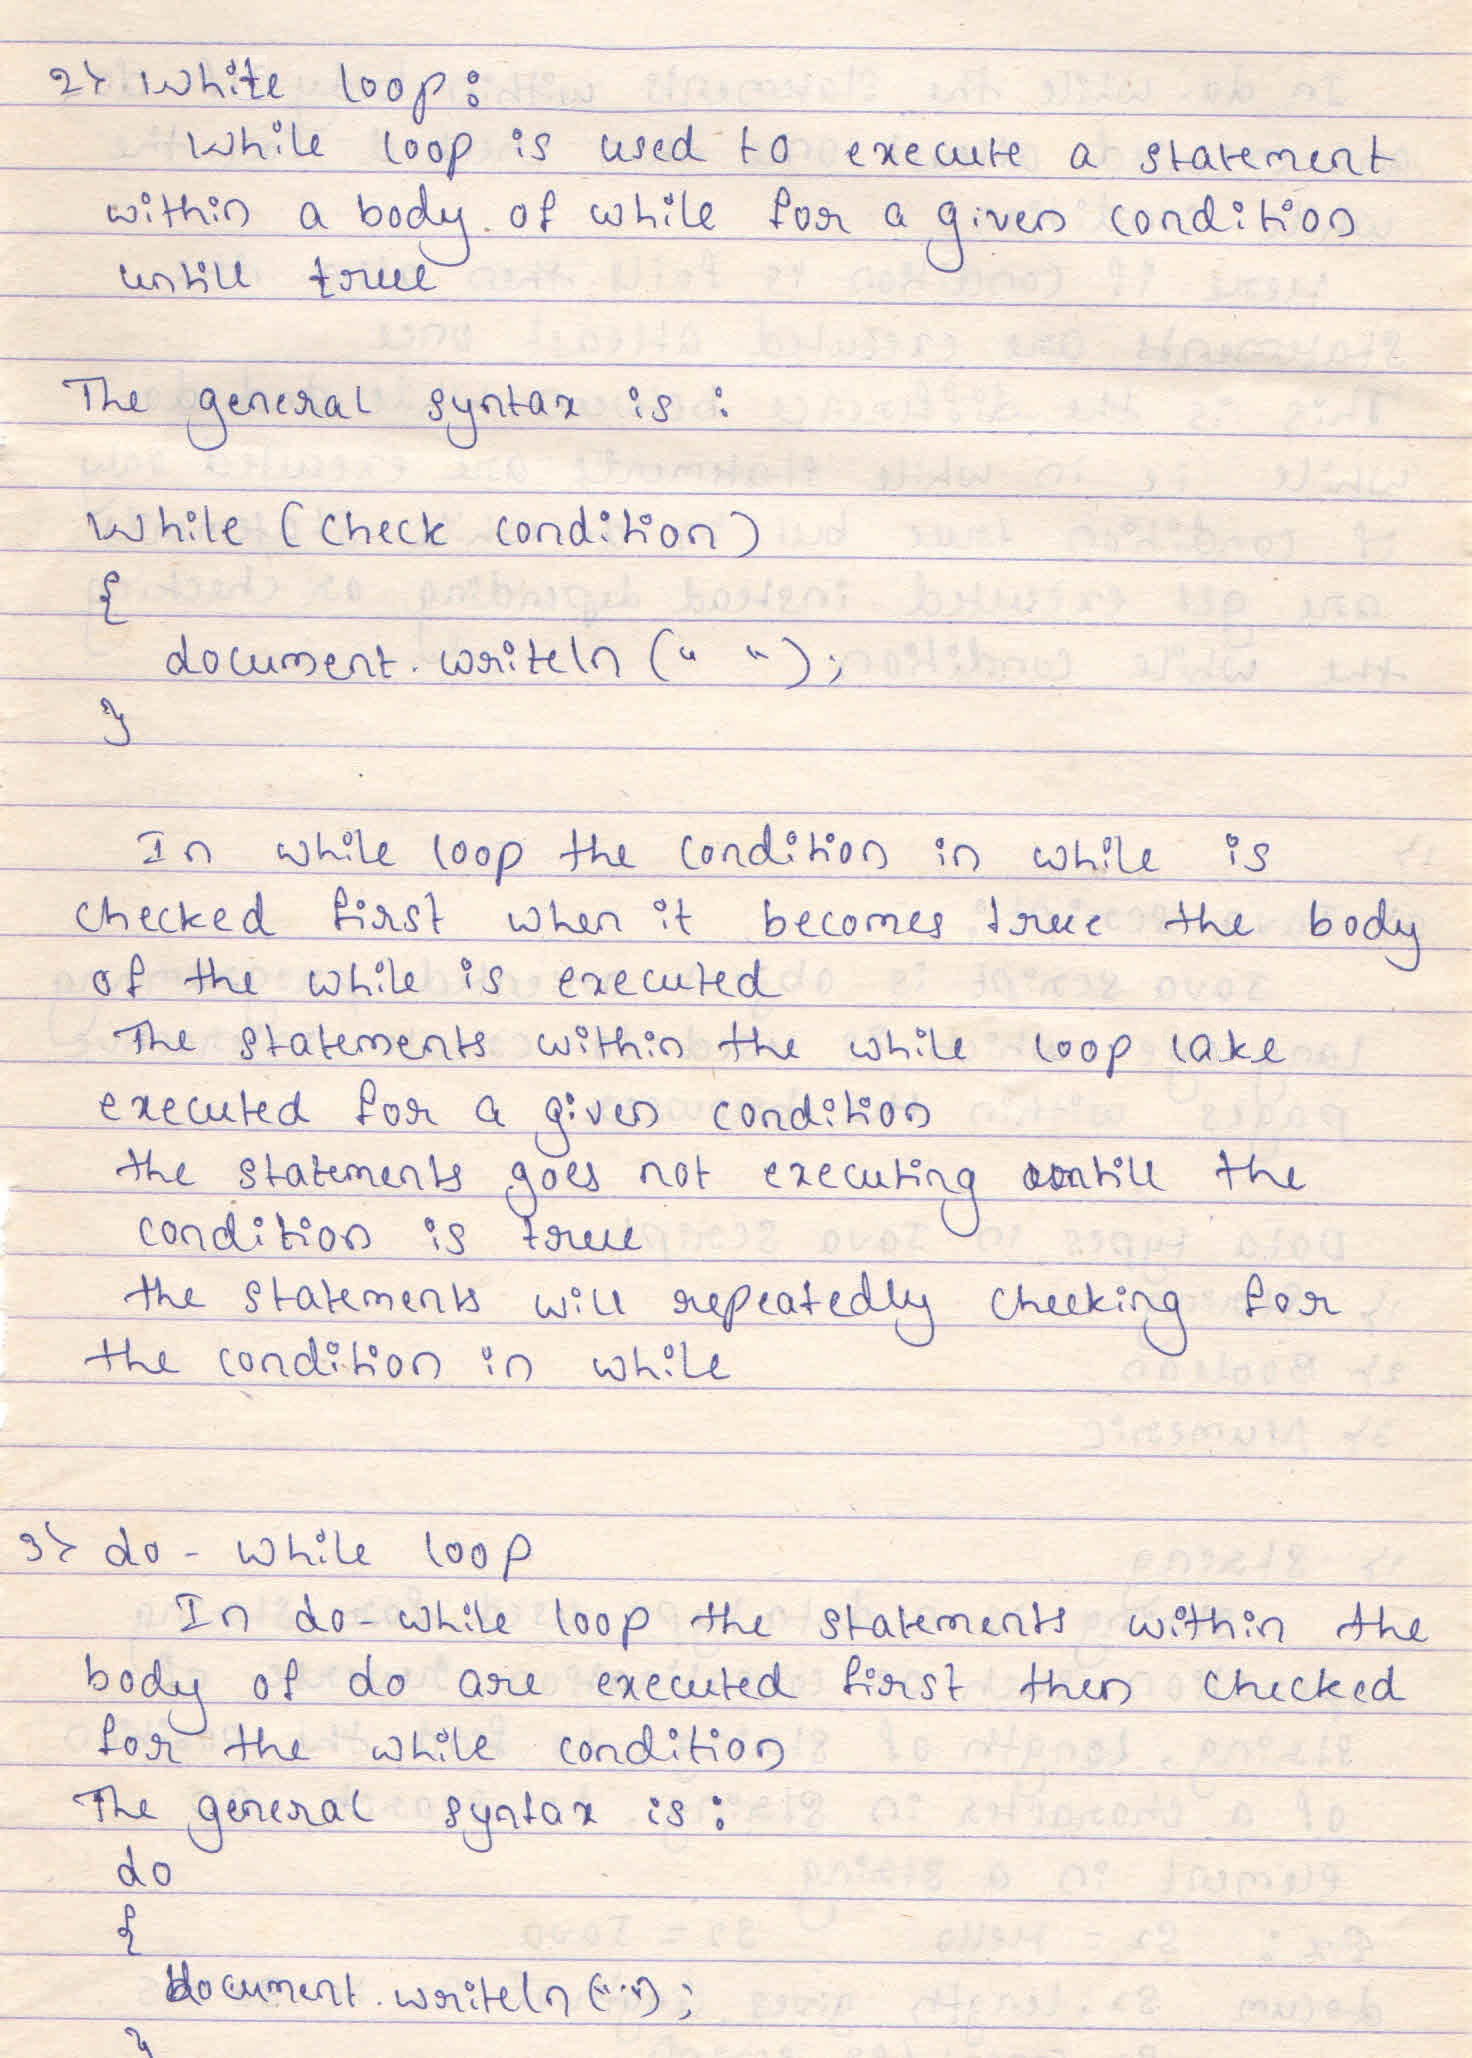 2> White loop:
While loop is used to execute a statement
within a body of while for a given condition
untill true
The general syntax is:
While (check condition)
{
document.writeln (" ");
}
In while loop the condition in while is
checked first when it becomes true the body
of the while is executed
The statements within the while loop lake
executed for a given condition
the statements goes not executing untill the
condition is true
the statements will repeatedly checking for
the condition in while
3> do - while loop
In do-while loop the statements within the
body of do are executed first then checked
for the while condition
The general syntax is:
do
{
document.writeln ("..");
}